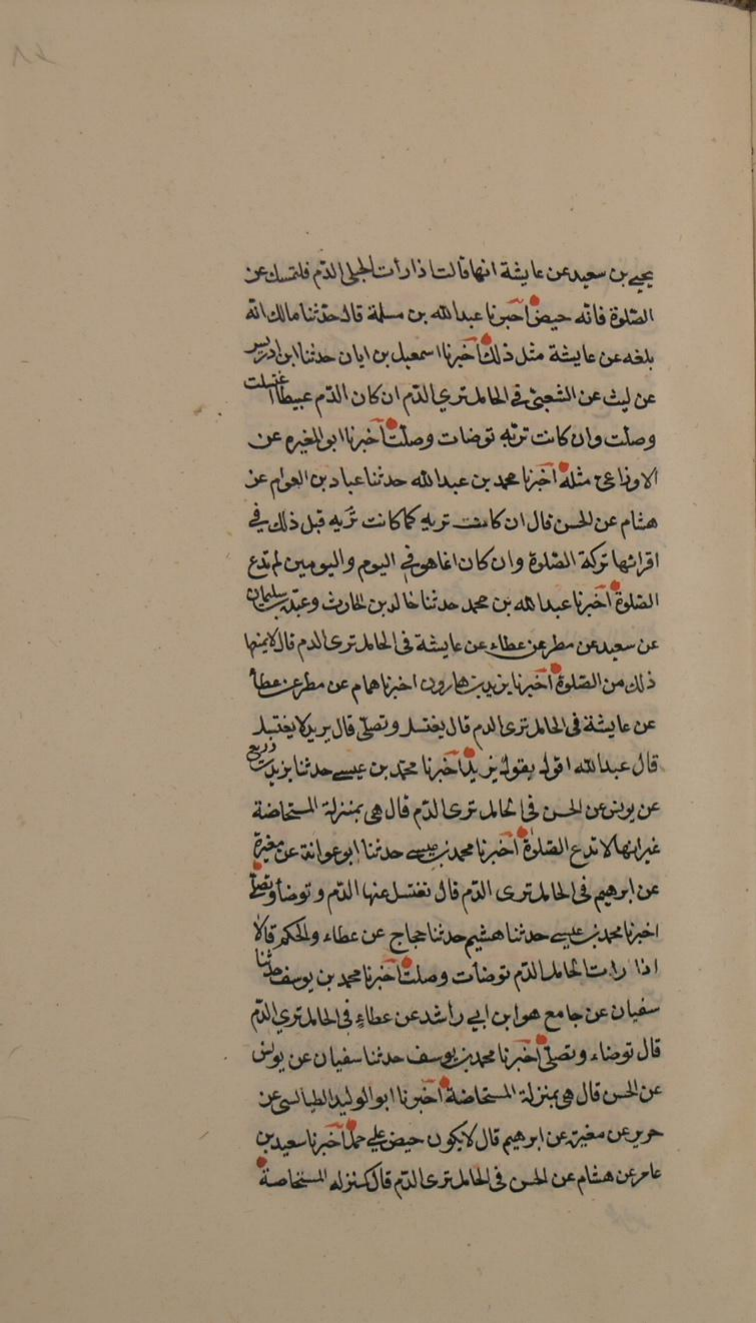 يحيى بن سعيد عن عايشة انها قالت اذا رات الحبلى الدّم فلتمسك عن
الصّلوة فانّه حيض أخبرنا عبد الله بن مسلمة قال حدّثنا مالك انّه
بلغه عن عايشة مثل ذلك أخبرنا اسمعيل بن ابان حدثنا ابن ادريس
عن ليث عن الشعبىّ فى الحامل ترى الدّم ان كان الدّم عبيطا اغتسلت
وصلّت وان كانت تريّه توضات وصلّت أخبرنا ابو المغيره عن
الاوزاعى مثله أخبرنا محمد بن عبد الله حدثنا عباد بن العوام عن
هشام عن الحسن قال ان كانت تريه كما كانت تَريه قبل ذلك فى
اقرائها تركة الصّلوة وان كان انما هو فى اليوم واليومين لم تدع
الصّلوة أخبرنا عبد الله بن محمد حدثنا خالد بن الحارث وعبدة بن سليمان
عن سعيد عن مطر عن عطاء عن عايشة فى الحامل ترى الدم قال لا يمنها
ذلك من الصّلوة أخبرنا يزيد بن هارون اخبرنا همام عن مطر عن عطاء
عن عايشة فى الحامل ترى الدم قال يغتسل وتصلّى قال يزيد لا يغتسل
قال عبد الله اقول بقول يزيد أخبرنا محمّد بن عيسى حدثنا يزيد بن زريع
عن يونس عن الحسن فى الحامل ترى الدّم قال هى بمنزلة المستحاضة
غير انها لا تدع الصّلوة أخبرنا محمد بن عيسى حدثنا ابو عوانة عن مغيرة
عن ابرهيم فى الحامل ترى الدّم قال تغتسل عنها الدّم وتوضأ وتصلّى
اخبرنا محمد بن عيسى حدثنا هشيم حدثنا حجاج عن عطاء والحكم قالا
اذا رات الحامل الدّم توضأت وصلت أخبرنا محمد بن يوسف حدثنا
سفيان عن جامع هو ابن ابى راشد عن عطاء فى الحامل ترى الدّم
قال توضاء وتصلّى أخبرنا محمد بن يوسف حدثنا سفيان عن يونس
عن الحسن قال هى بمنزلة المستحاضة أخبرنا ابو الوليد الطيالسى عن
حرير عن مغيرة عن ابرهيم قال لا يكون حيض على حمل أخبرنا سعيد بن
عامر عن هشام عن الحسن فى الحامل ترى الدّم قال كمنزله المستحاضة